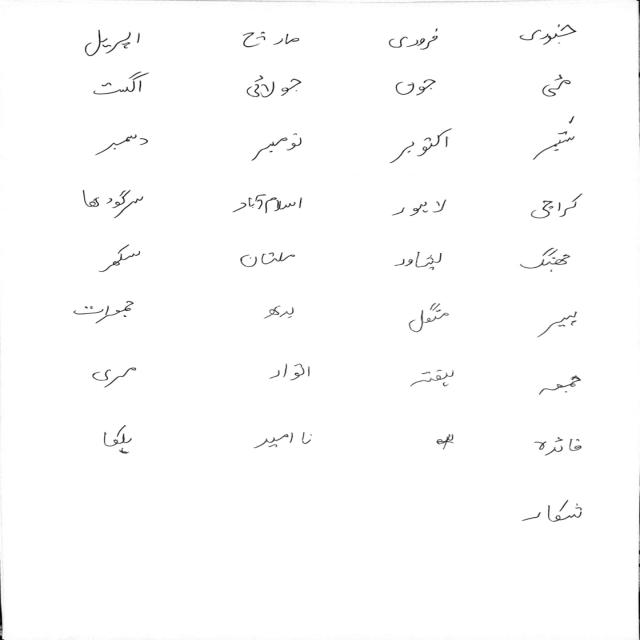 جنوری فروری مارچ اپریل
مئی جون جولائی اگست
ستمبر اکتوبر نومبر دسمبر
کراچی لاہور اسلام آباد سرگودھا
جھنگ پشاور ملتان سکھر
پیر منگل بدھ جمعرات
جمعہ ہفتہ اتوار مری
فائدہ نا امید ہلکا
شکار